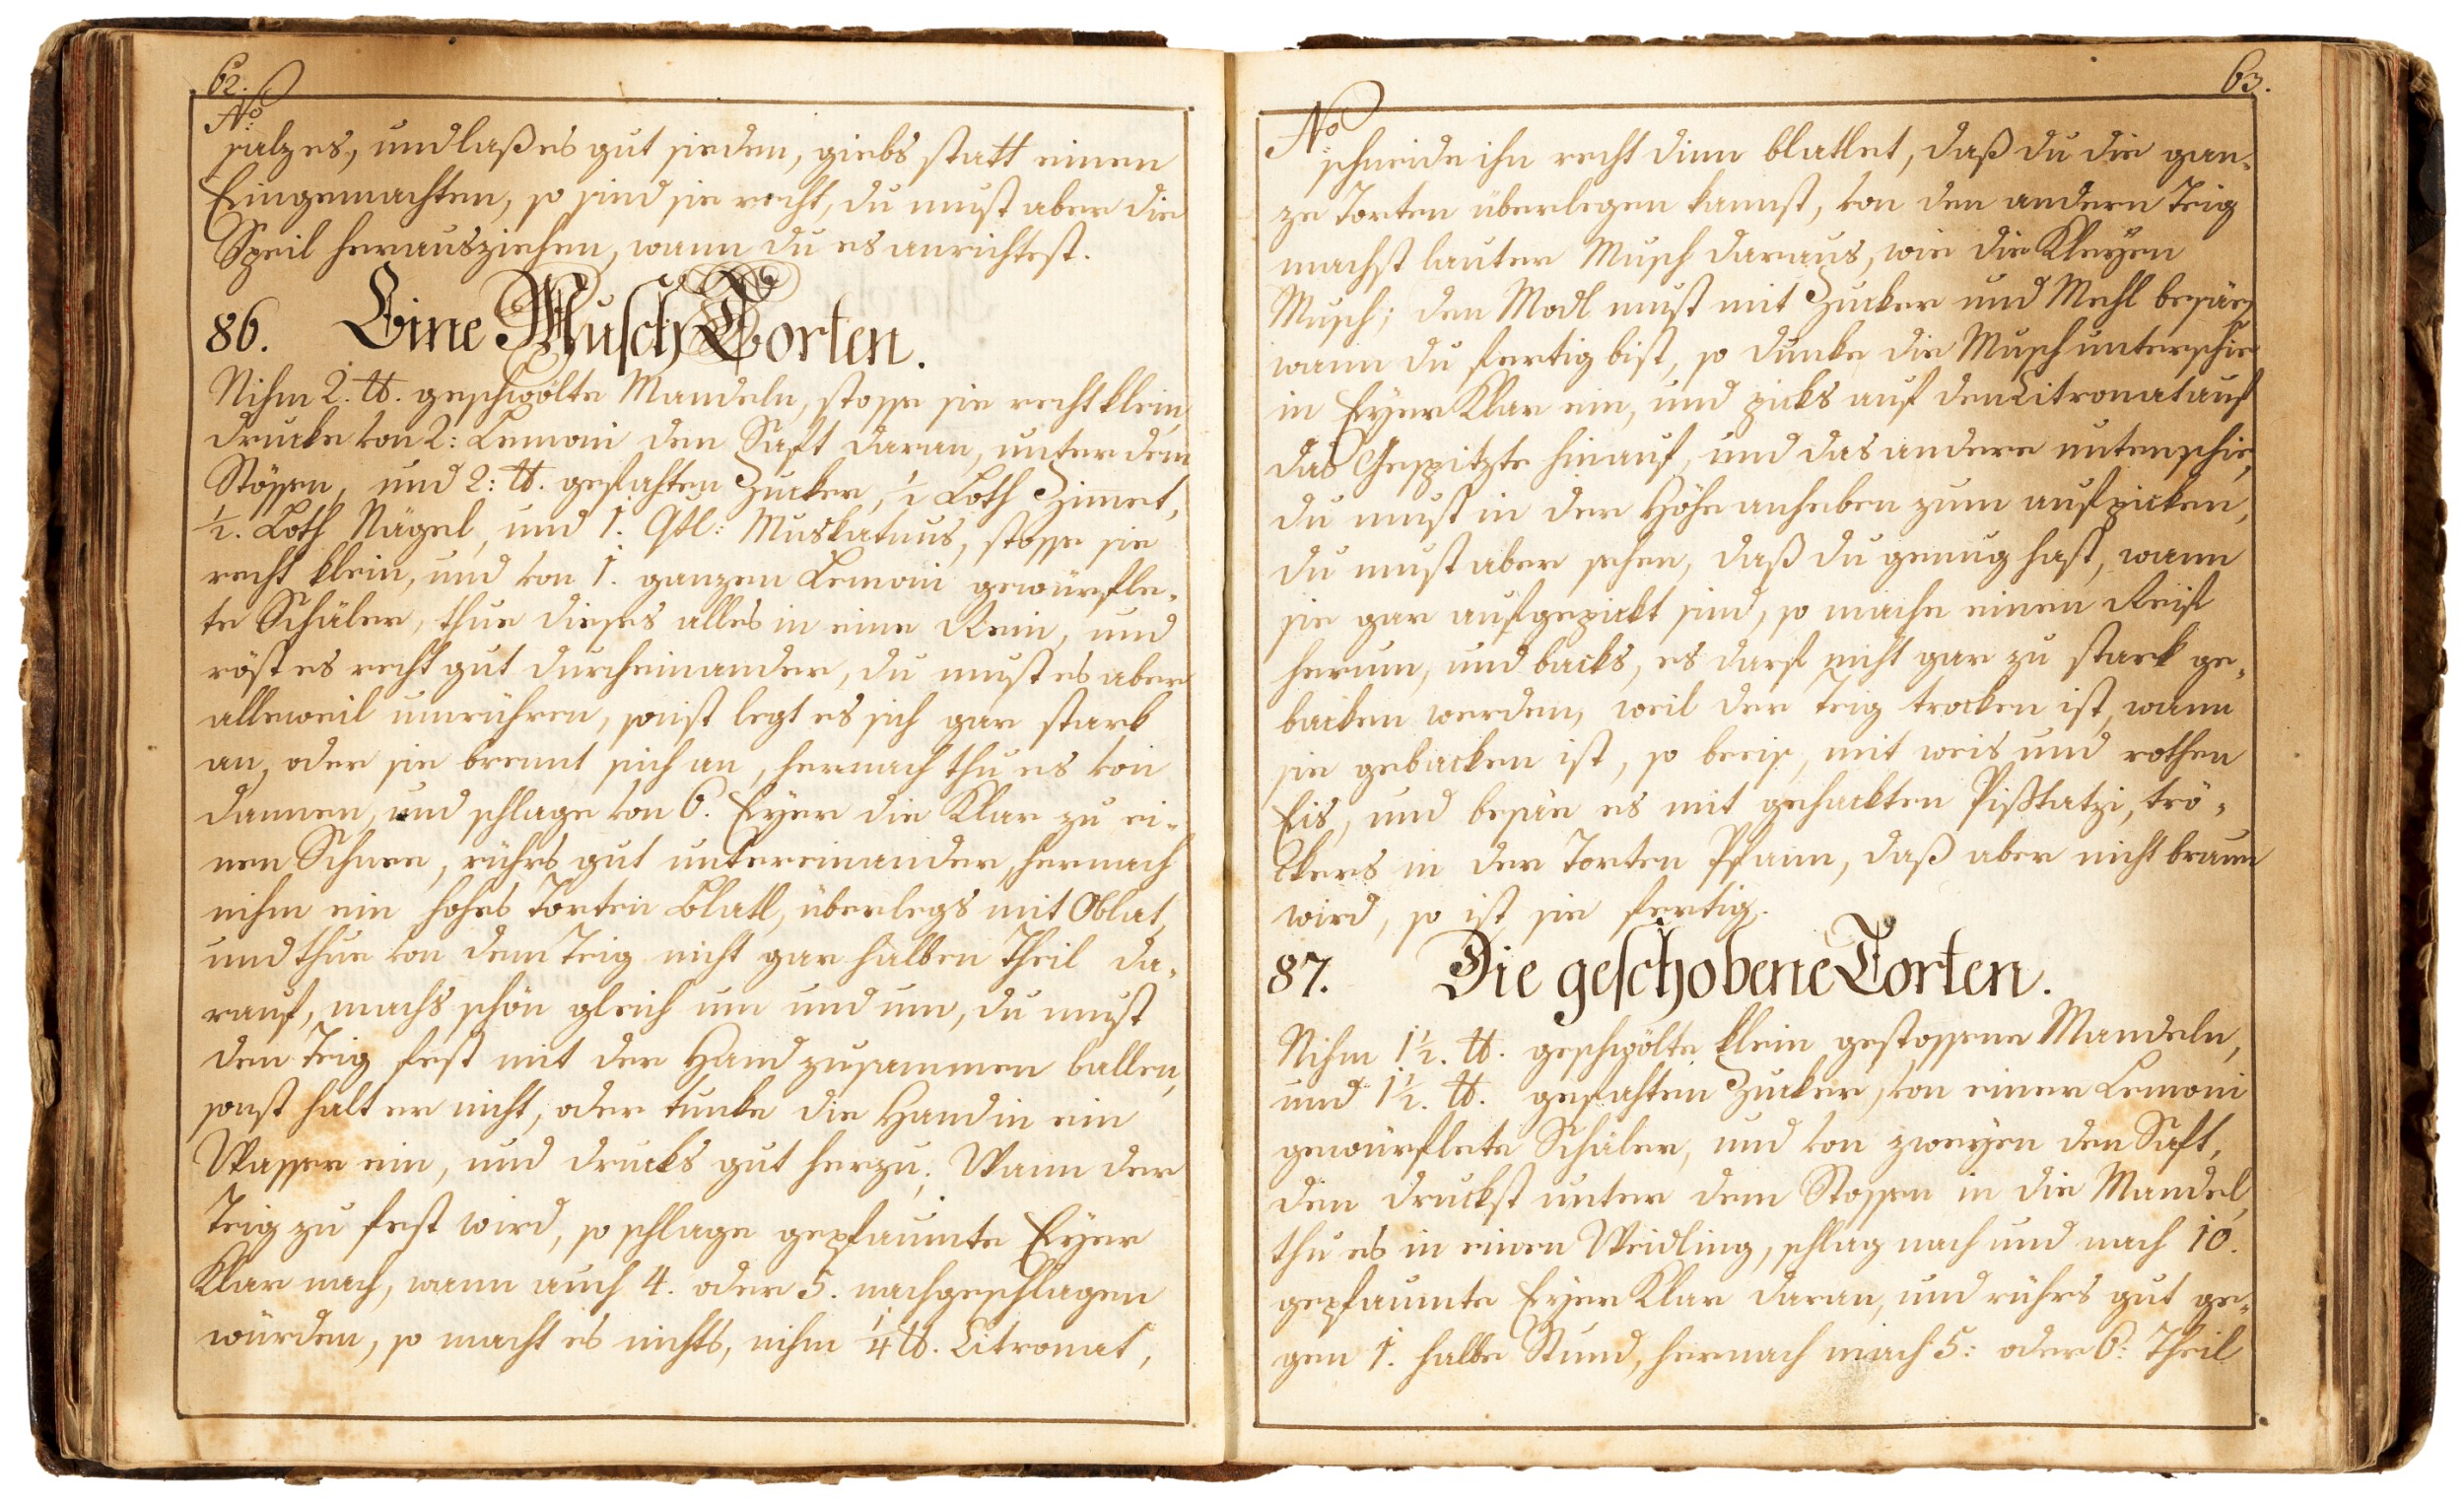 62.
No
salzes, und laß es gut sieden, giebs statt einen
Eingemachten, so sind sie recht, du must aber die
Speil herausziehen, wann du es anrichtest.
86. Eine Musch Torten.
Nihm 2. ℔. geschwölte Mandeln, stosse sie recht klein,
drucke von 2: Lemoni den Saft daran, unter dem
Stössen, und 2: ℔. gefahten Zucker, ½ Loth Zimmet,
½. Loth Nägel, und 1. Qtl: Muskatnus, stosse sie
recht klein, und von 1. ganzen Lemoni gewürfle-
te Schäler, thue dieses alles in eine Rein, und
röst es recht gut durcheinander, du must es aber
alleweil umrühren, sonst legt es sich gar stark
an, oder sie brennt sich an, hernach thu es von
dannen, und schlage von 6. Eyer die Klar zu ei-
nen Schnee, rührs gut untereinander, hernach
nihm ein hohes Torten Blatl, überlegs mit Oblat,
und thue von dem Teig nicht gar halben Theil da-
rauf, machs schön gleich um und um, du must
den Teig fest mit der Hand zusammen ballen,
sonst halt er nicht, oder tunke die Hand in ein
Wasser ein, und drucks gut herzu. Wann der
Teig zu fest wird, so schlage gepfaumte Eyer
Klar nach, wann auch 4. oder 5. nachgeschlagen
würden, so macht es nichts, nihm ¼ ℔. Citronat,
63.
No
schneide ihn recht dinn blatlet, daß du die gan-
ze Torten überlegen kannst, von den andern Teig
machst lauter Musch daraus, wie die Kleyen
Musch; den Modl must mit Zucker und Mehl besäen
wann du fertig bist, so dunke die Musch unterschie
in Eyer Klar ein, und picks auf den Citronat auf
das Gespitzte hinauf, und das andere untenschie,
du must in der Höhe anheben zum aufpicken,
du must aber sehen, daß du genug hast, wann
sie gar aufgepickt sind, so mache einen Reif
herum, und backs, es darf nicht gar zu stark ge-
backen werden, weil der Teig trocken ist, wann
sie gebacken ist, so beeise, mit weis und rothen
Eis, und besäe es mit gehackten Pißtatzi, trö-
ckers in der Torten Pfann, daß aber nicht braun
wird, so ist sie fertig.
87. Die geschobene Torten.
Nihm 1½. ℔. geschwölte klein gestossene Mandeln,
und 1½. ℔. gefahten Zucker, von einer Lemoni
gewürflete Schäler, und von zweyen den Saft,
den druckst unter dem Stossen in die Mandel,
thu es in einen Weidling, schlag nach und nach 10.
gepfaumte Eyer Klar daran, und rührs gut ge-
gen 1. halbe Stund, hernach mach 5: oder 6: Theil